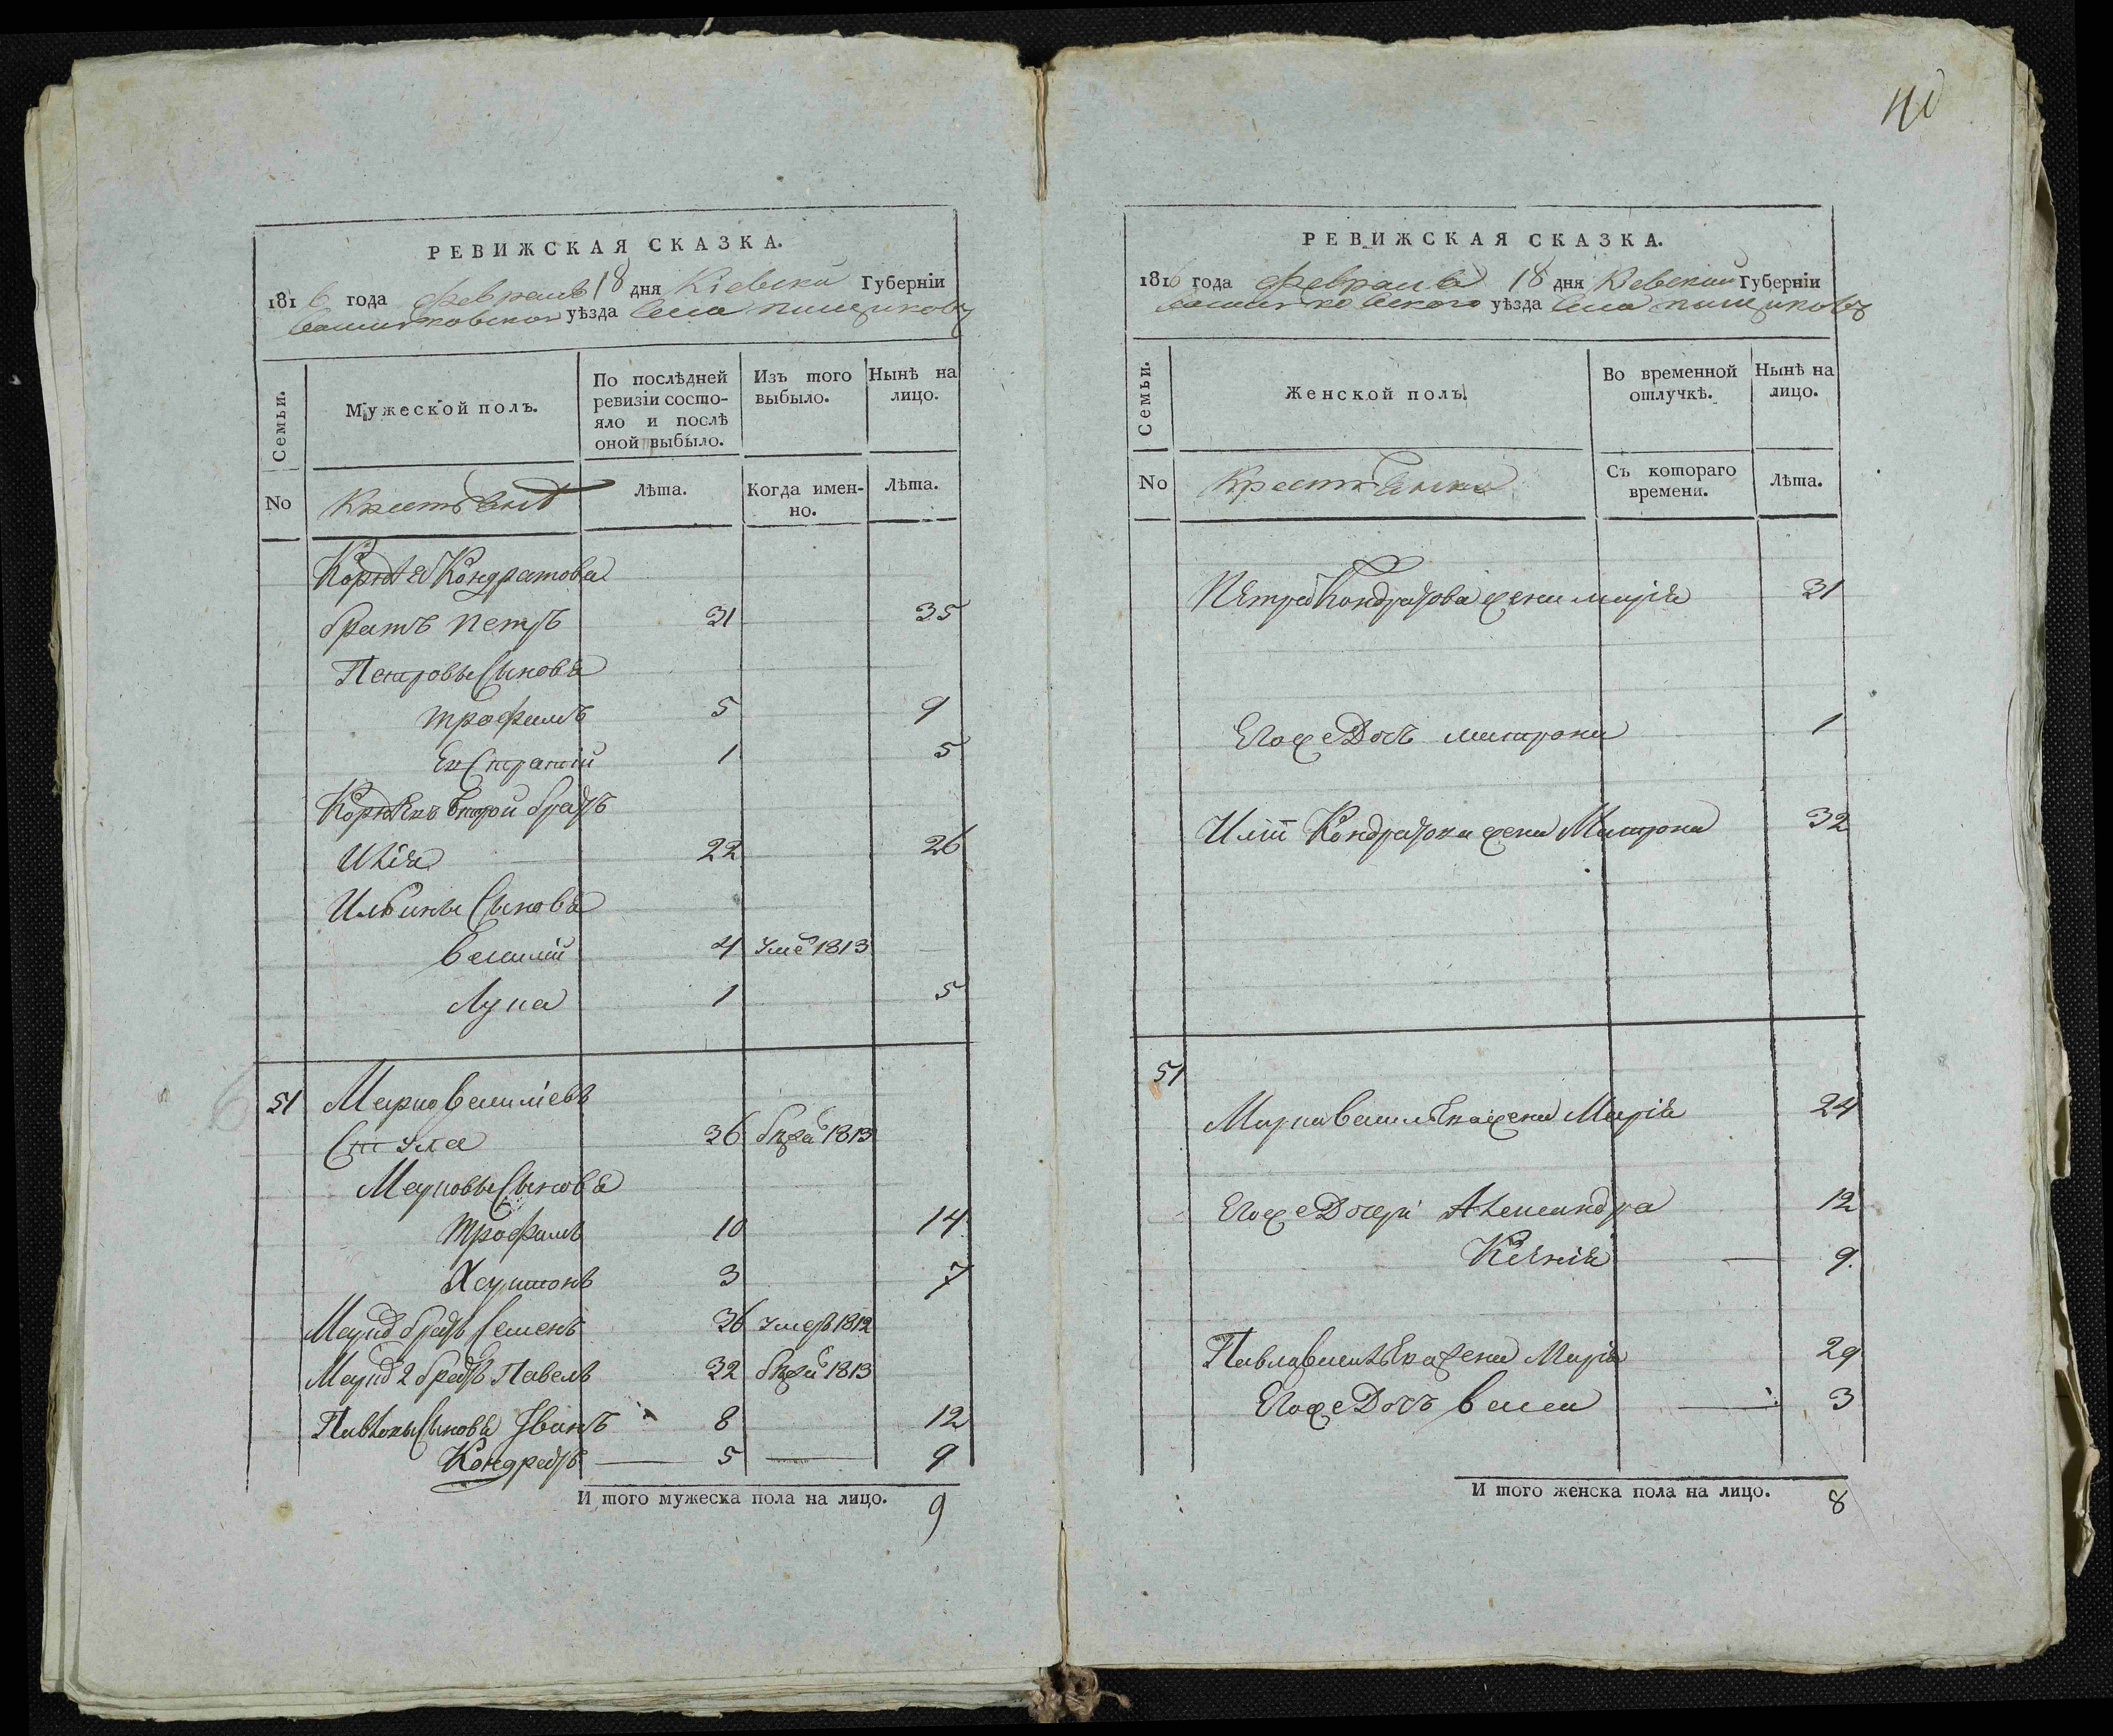 РЕВИЖСКАЯ СКАЗКА.
1816 года Февраля 18 дня Кіевской Губерніи
Васильковского уѣзда Села пищиковъ
Семьи.
Мужеской полъ.
По послѣдней ревизіи состо-
яло и послѣ
оной выбыло.
Изъ того
выбыло.
Нынѣ на
лицо.
No
Крестьяне
Лѣта.
Когда имен-
но.
Лѣта.
Корнея Кондратова
братъ петръ 31 35
Петровы Сыновя
трофимъ 5 9
Евстратій 1 5
Корнеевъ второй братъ
Илія 22 26
Ильины Сыновя
василій 4 Уме 1813
Лука 1 5
51 Марко василіевъ
36 1813
Марковы Сыновя
трофимъ 10 14
Харитонъ 3 7
Марка братъ Семенъ 36 умеръ 1812
Марка 2 братъ Павелъ 32 1813
Павловы Сыновя Іванъ 8 12
Кондратъ 5 9
И того мужеска пола на лицо. 9
РЕВИЖСКАЯ СКАЗКА.
1816 года Февраля 18 дня Кіевской Губерніи
васильковского уѣзда Села пищиковъ
Семьи.
Женской полъ.
Во временной
отлучкѣ.
Нынѣ на
лицо.
No
Крестьянки
Съ котораго
времени.
Лѣта.
Петра Кондратова жена марія 31
Егоже Дочь матрона 1
Кондратова жена Матрона 32
51
Марка васильева жена Марія 24
Егоже Дочери Александра 12
Ксенія 9.
Павла васильева жена Марія 29
Егоже Дочь васса 3
И того женска пола на лицо. 8